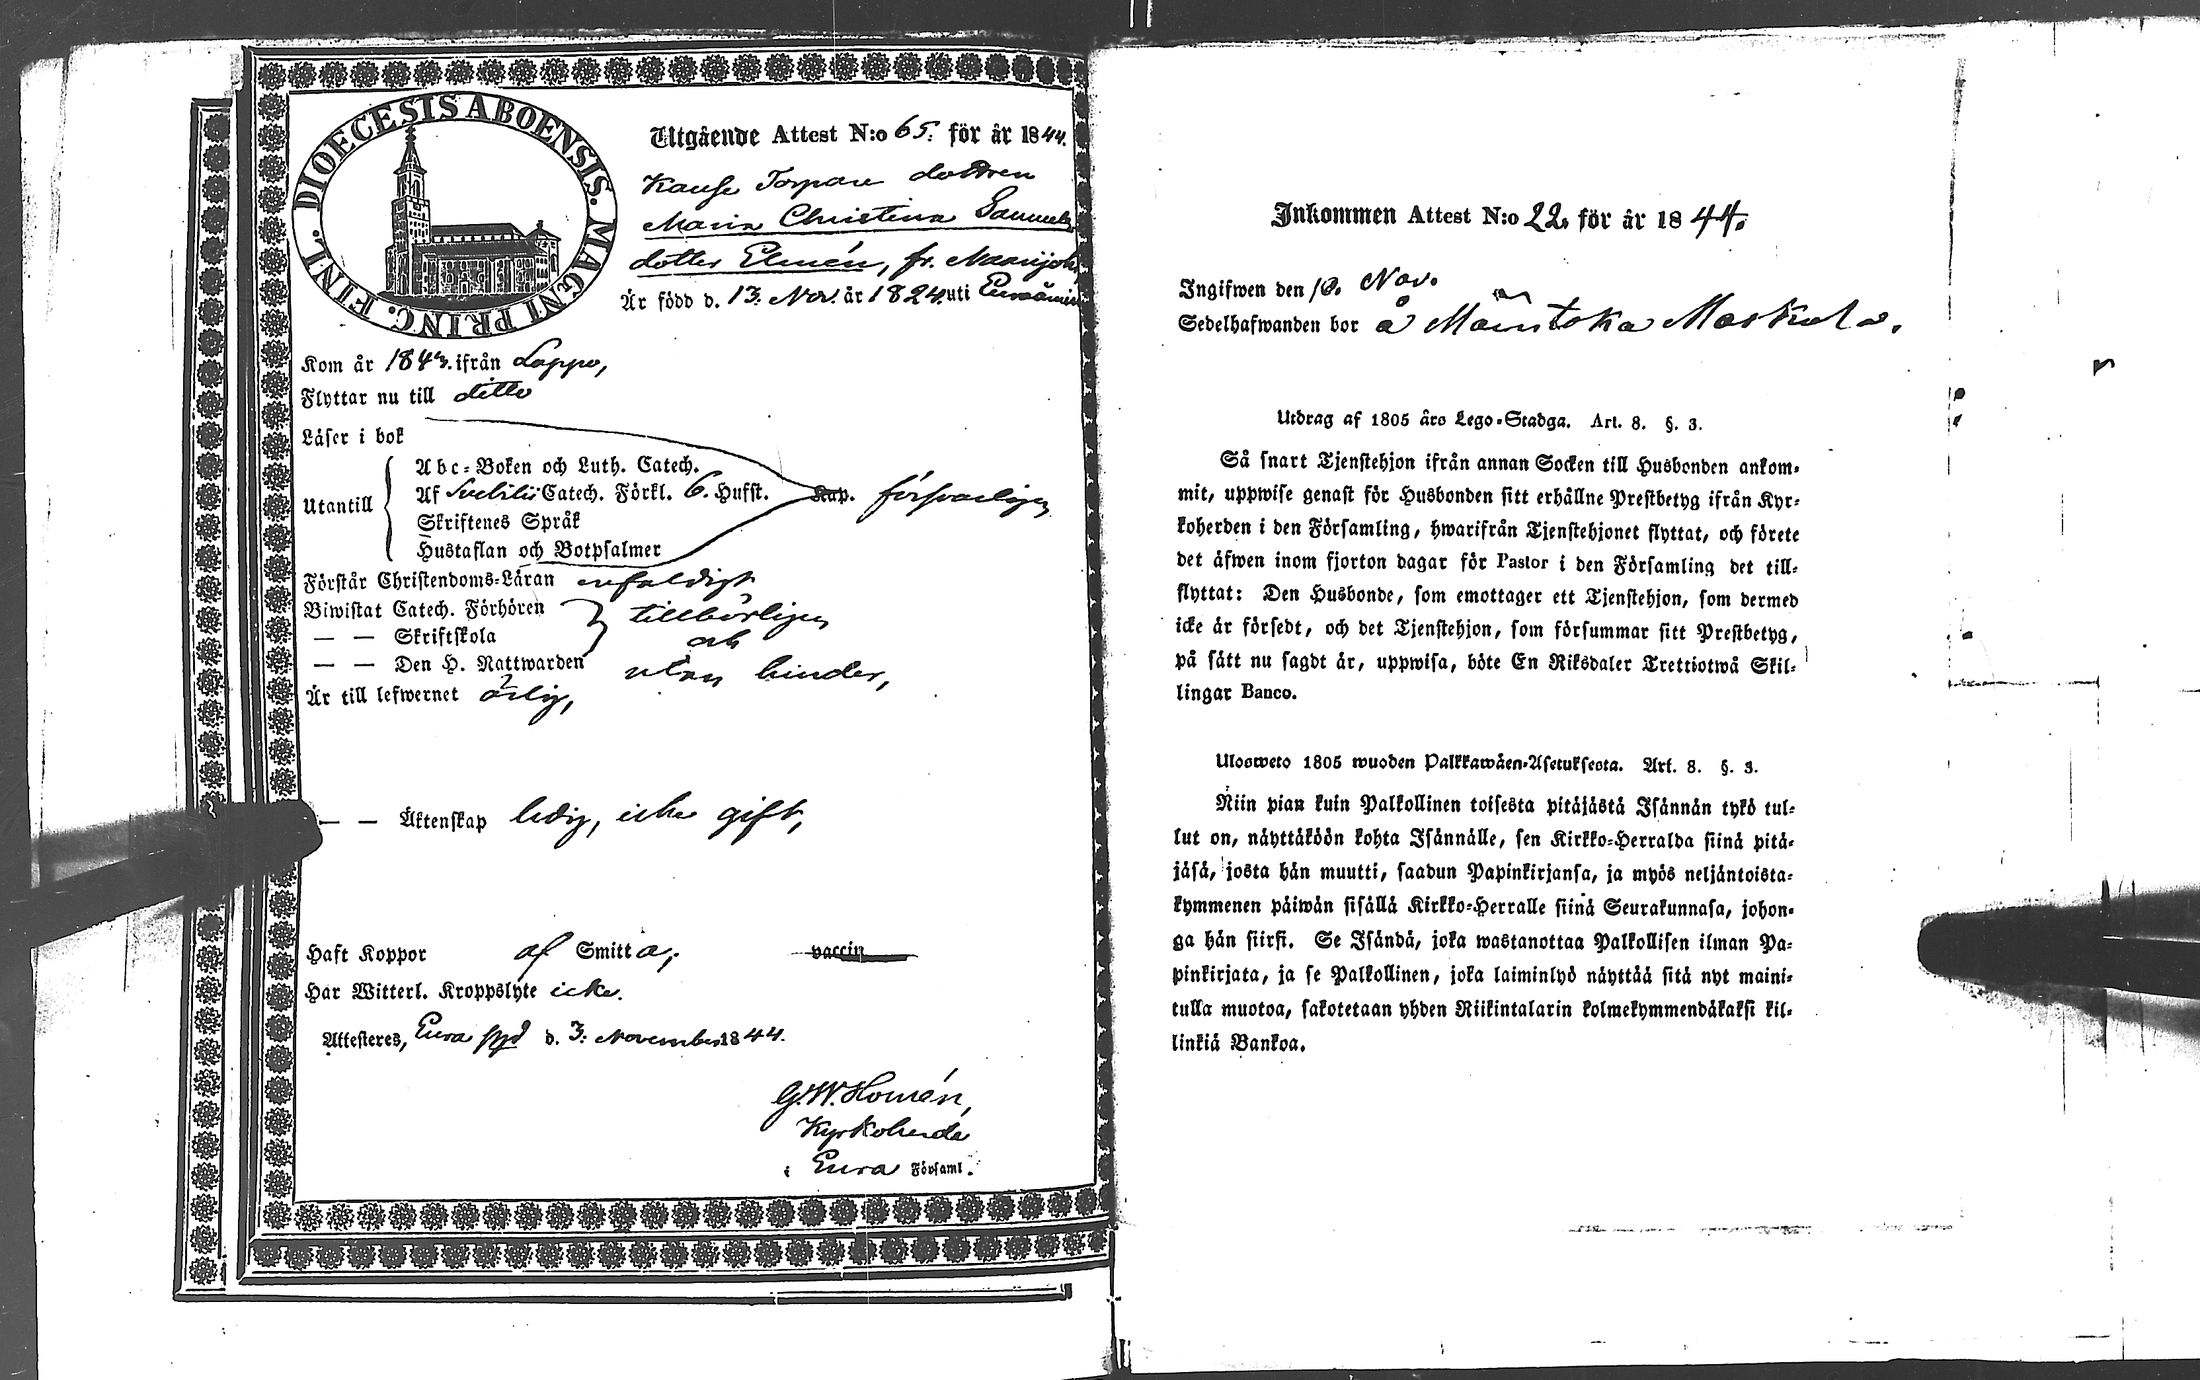 DIOECESIS ABOENSIS. MAGNI PRINC. FINL.
Utgående Attest N:o 65. för år 1844.
Torpare dottren
Maria Christina Samuels
dotter Elmén, fr.
Är född d. 13. Nov. år 1824. uti
Kom år 1843. ifrån Lappo,
Flyttar nu till ditto
Läser i bok
Utantill
Abc-Boken och Luth. Catech.
Af Svebilii Catech. Förkl. 6. Hufst. Kap. försvarligen
Skriftenes Språk
Hustaflan och Botpsalmer
Förstår Christendoms-Läran enfaldigt
Biwistat Catech. Förhören tillbörligen
— — Skriftskola och
— — Den H. Nattwarden utan hinder,
Är till lefwernet ärlig,
— — Äktenskap ledig, icke gift,
Haft Koppor af Smitta, vaccin
Har Witterl. Kroppslyte icke.
Attesteres, Eura d. 3. November 1844.
G.W. Homén,
Kyrkoherde
i Eura Församl.
Inkommen Attest N:o 22. för år 1844.
Ingifwen den 10. Nov.
Sedelhafwanden bor å Mäntoka Maskula.
Utdrag af 1805 års Lego-Stadga. Art. 8. §. 3.
Så snart Tjenstehjon ifrån annan Socken till Husbonden ankom-
mit, uppwise genast för Husbonden sitt erhållne Prestbetyg ifrån Kyr-
koherden i den Församling, hwarifrån Tjenstehjonet flyttat, och förete
det äfwen inom fjorton dagar för Pastor i den Församling det till-
flyttat: Den Husbonde, som emottager ett Tjenstehjon, som dermed
icke är försedt, och det Tjenstehjon, som försummar sitt Prestbetyg,
på sätt nu sagdt är, uppwisa, böte En Riksdaler Trettiotwå Skil-
lingar Banco.
Ulosweto 1805 wuoden Palkkawäen-Asetuksesta. Art. 8. §. 3.
Niin pian kuin Palkollinen toisesta pitäjästä Isännän tykö tul-
lut on, näyttäköön kohta Isännälle, sen Kirkko-Herralda siinä pitä-
jäsä, josta hän muutti, saadun Papinkirjansa, ja myös neljäntoista-
kymmenen päiwän sisällä Kirkko-Herralle siinä Seurakunnasa, johon-
ga hän siirsi. Se Isändä, joka wastanottaa Palkollisen ilman Pa-
pinkirjata, ja se Palkollinen, joka laiminlyö näyttää sitä nyt maini-
tulla muotoa, sakotetaan yhden Riikintalarin kolmekymmendäkaksi kil-
linkiä Bankoa.